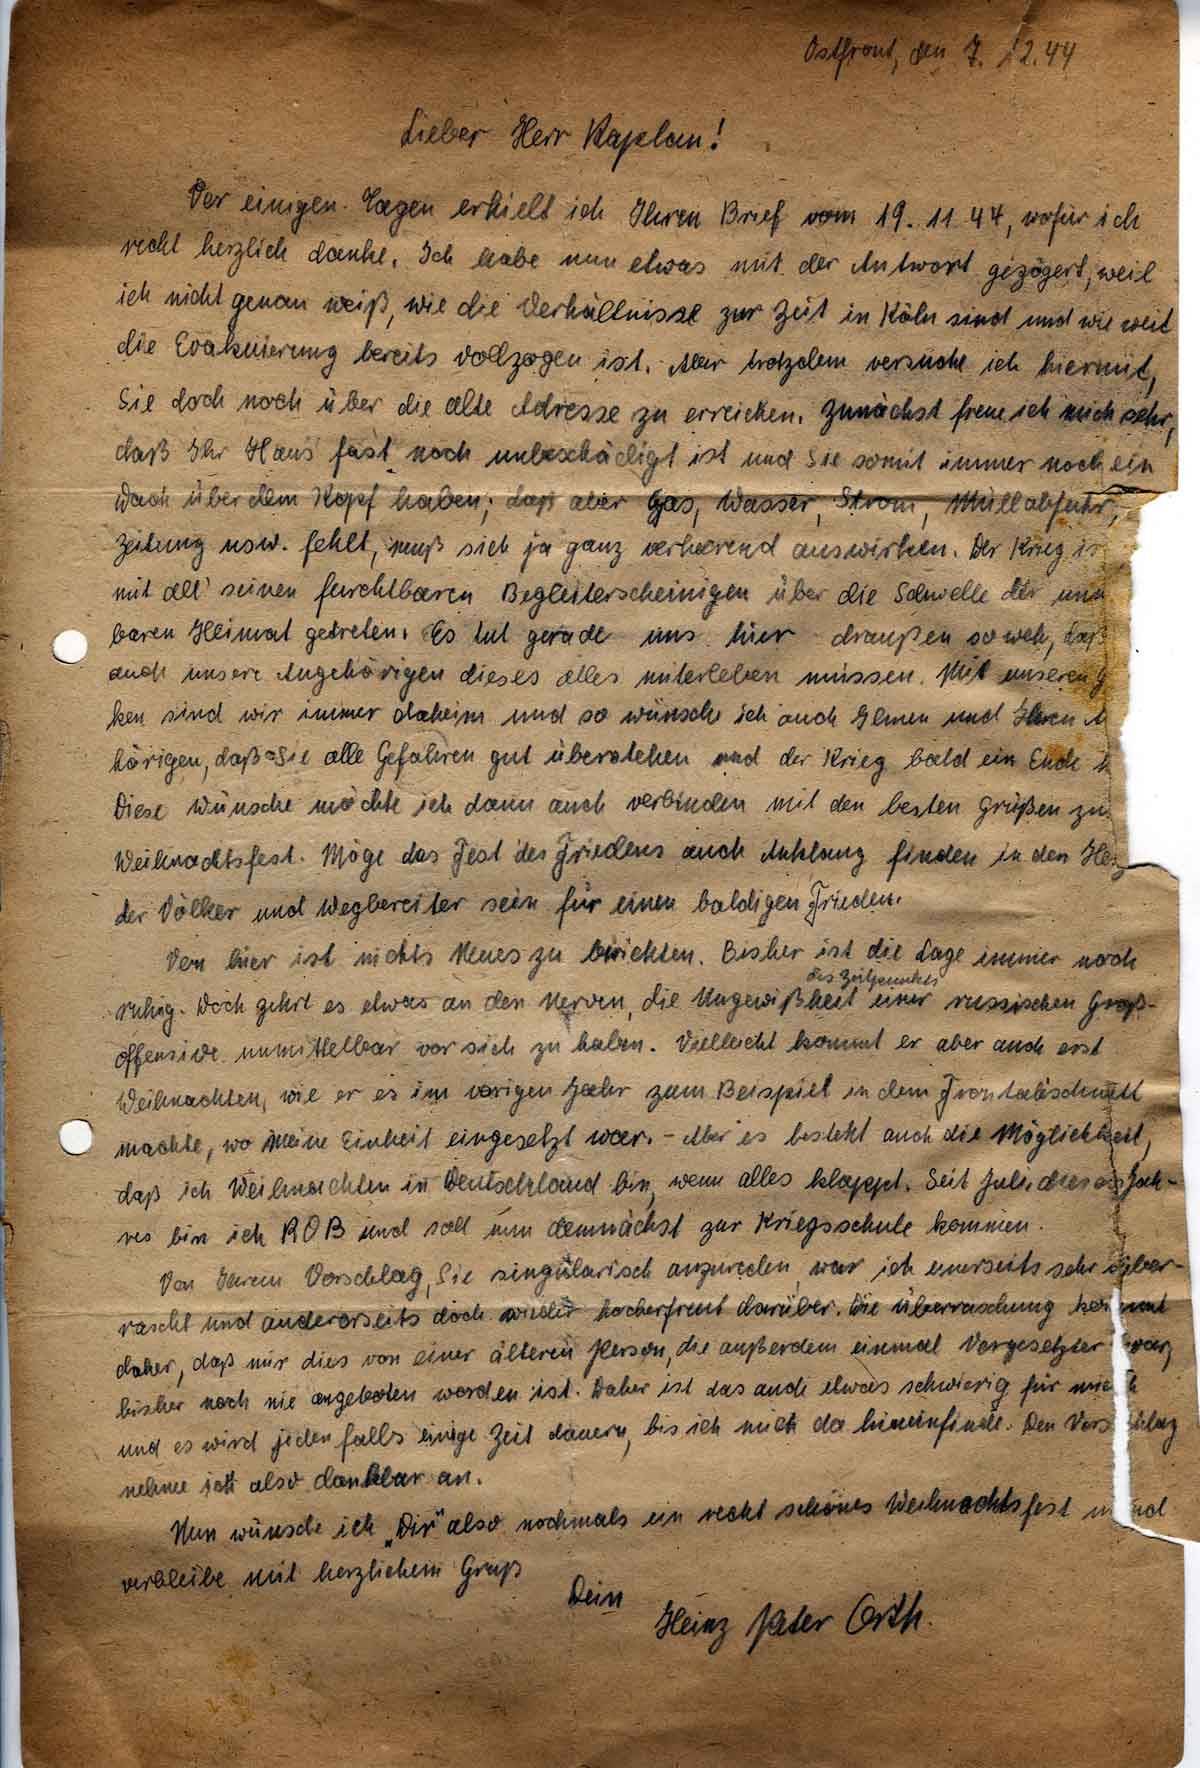 Ostfront, den 7. 12. 44
Lieber Herr Kaplan!
Vor einigen Tagen erhielt ich Ihren Brief vom 19. 11 44, wofür ich
recht herzlich danke. Ich habe nun etwas mit der Antwort gezögert, weil
ich nicht genau weiß, wie die Verhältnisse zur Zeit in Köln sind und wie weit
die Evakuierung bereits vollzogen ist. Aber trotzdem versuche ich hiermit,
Sie doch noch über die alte Adresse zu erreichen. Zunächst freue ich mich sehr,
daß Ihr Haus fast noch unbeschädigt ist und Sie somit immer noch ein
Dach über dem Kopf haben; daß aber Gas, Wasser, Strom, Müllabfuhr,
Zeitung usw. fehlt, muß sich ja ganz verheerend auswirken. Der Krieg is
mit all' seinen furchtbaren Begleiterscheinigen über die Schwelle der unn
baren Heimat getreten. Es tut gerade uns hier draußen so weh, daß
auch unsere Angehörigen dieses alles miterleben müssen. Mit unseren G
ken sind wir immer daheim und so wünsche ich auch Ihnen und Ihren A
hörigen, daß Sie alle Gefahren gut überstehen und der Krieg bald ein Ende
Diese Wünsche möchte ich dann auch verbinden mit den besten Grüßen zu
Weihnachtsfest. Möge das Fest des Friedens auch Anklang finden in den Her
der Völker und Wegbereiter sein für einen baldigen Frieden.
Von hier ist nichts Neues zu berichten. Bisher ist die Lage immer noch
des Zeitpunktes
ruhig. Doch gehrt es etwas an den Nerven, die Ungewißheit einer russischen Groß-
offensive unmittelbar vor sich zu haben. Vielleicht kommt er aber auch erst
Weihnachten, wie er es im vorigen Jahr zum Beispiel in dem Frontabschnitt
machte, wo meine Einheit eingesetzt war. - Aber es besteht auch die Möglichkeit,
daß ich Weihnachten in Deutschland bin, wenn alles klappt. Seit Juli dieses Jah-
res bin ich ROB und soll nun demnächst zur Kriegsschule kommen.
Von Ihrem Vorschlag, Sie singularisch anzureden, war ich einerseits sehr über-
rascht und andererseits doch wieder hocherfreut darüber. Die Überraschung kommt
daher, daß mir dies von einer älteren Person, die außerdem einmal Vorgesetzter war,
bisher noch nie angeboten worden ist. Daher ist das auch etwas schwierig für mich
und es wird jedenfalls einige Zeit dauern, bis ich mich da hineinfinde. Den Vorschlag
nehme ich also dankbar an.
Nun wünsche ich „Dir" also nochmals ein recht schönes Weihnachtsfest und
verbleibe mit herzlichem Gruß
Dein
Heinz Peter Orth.